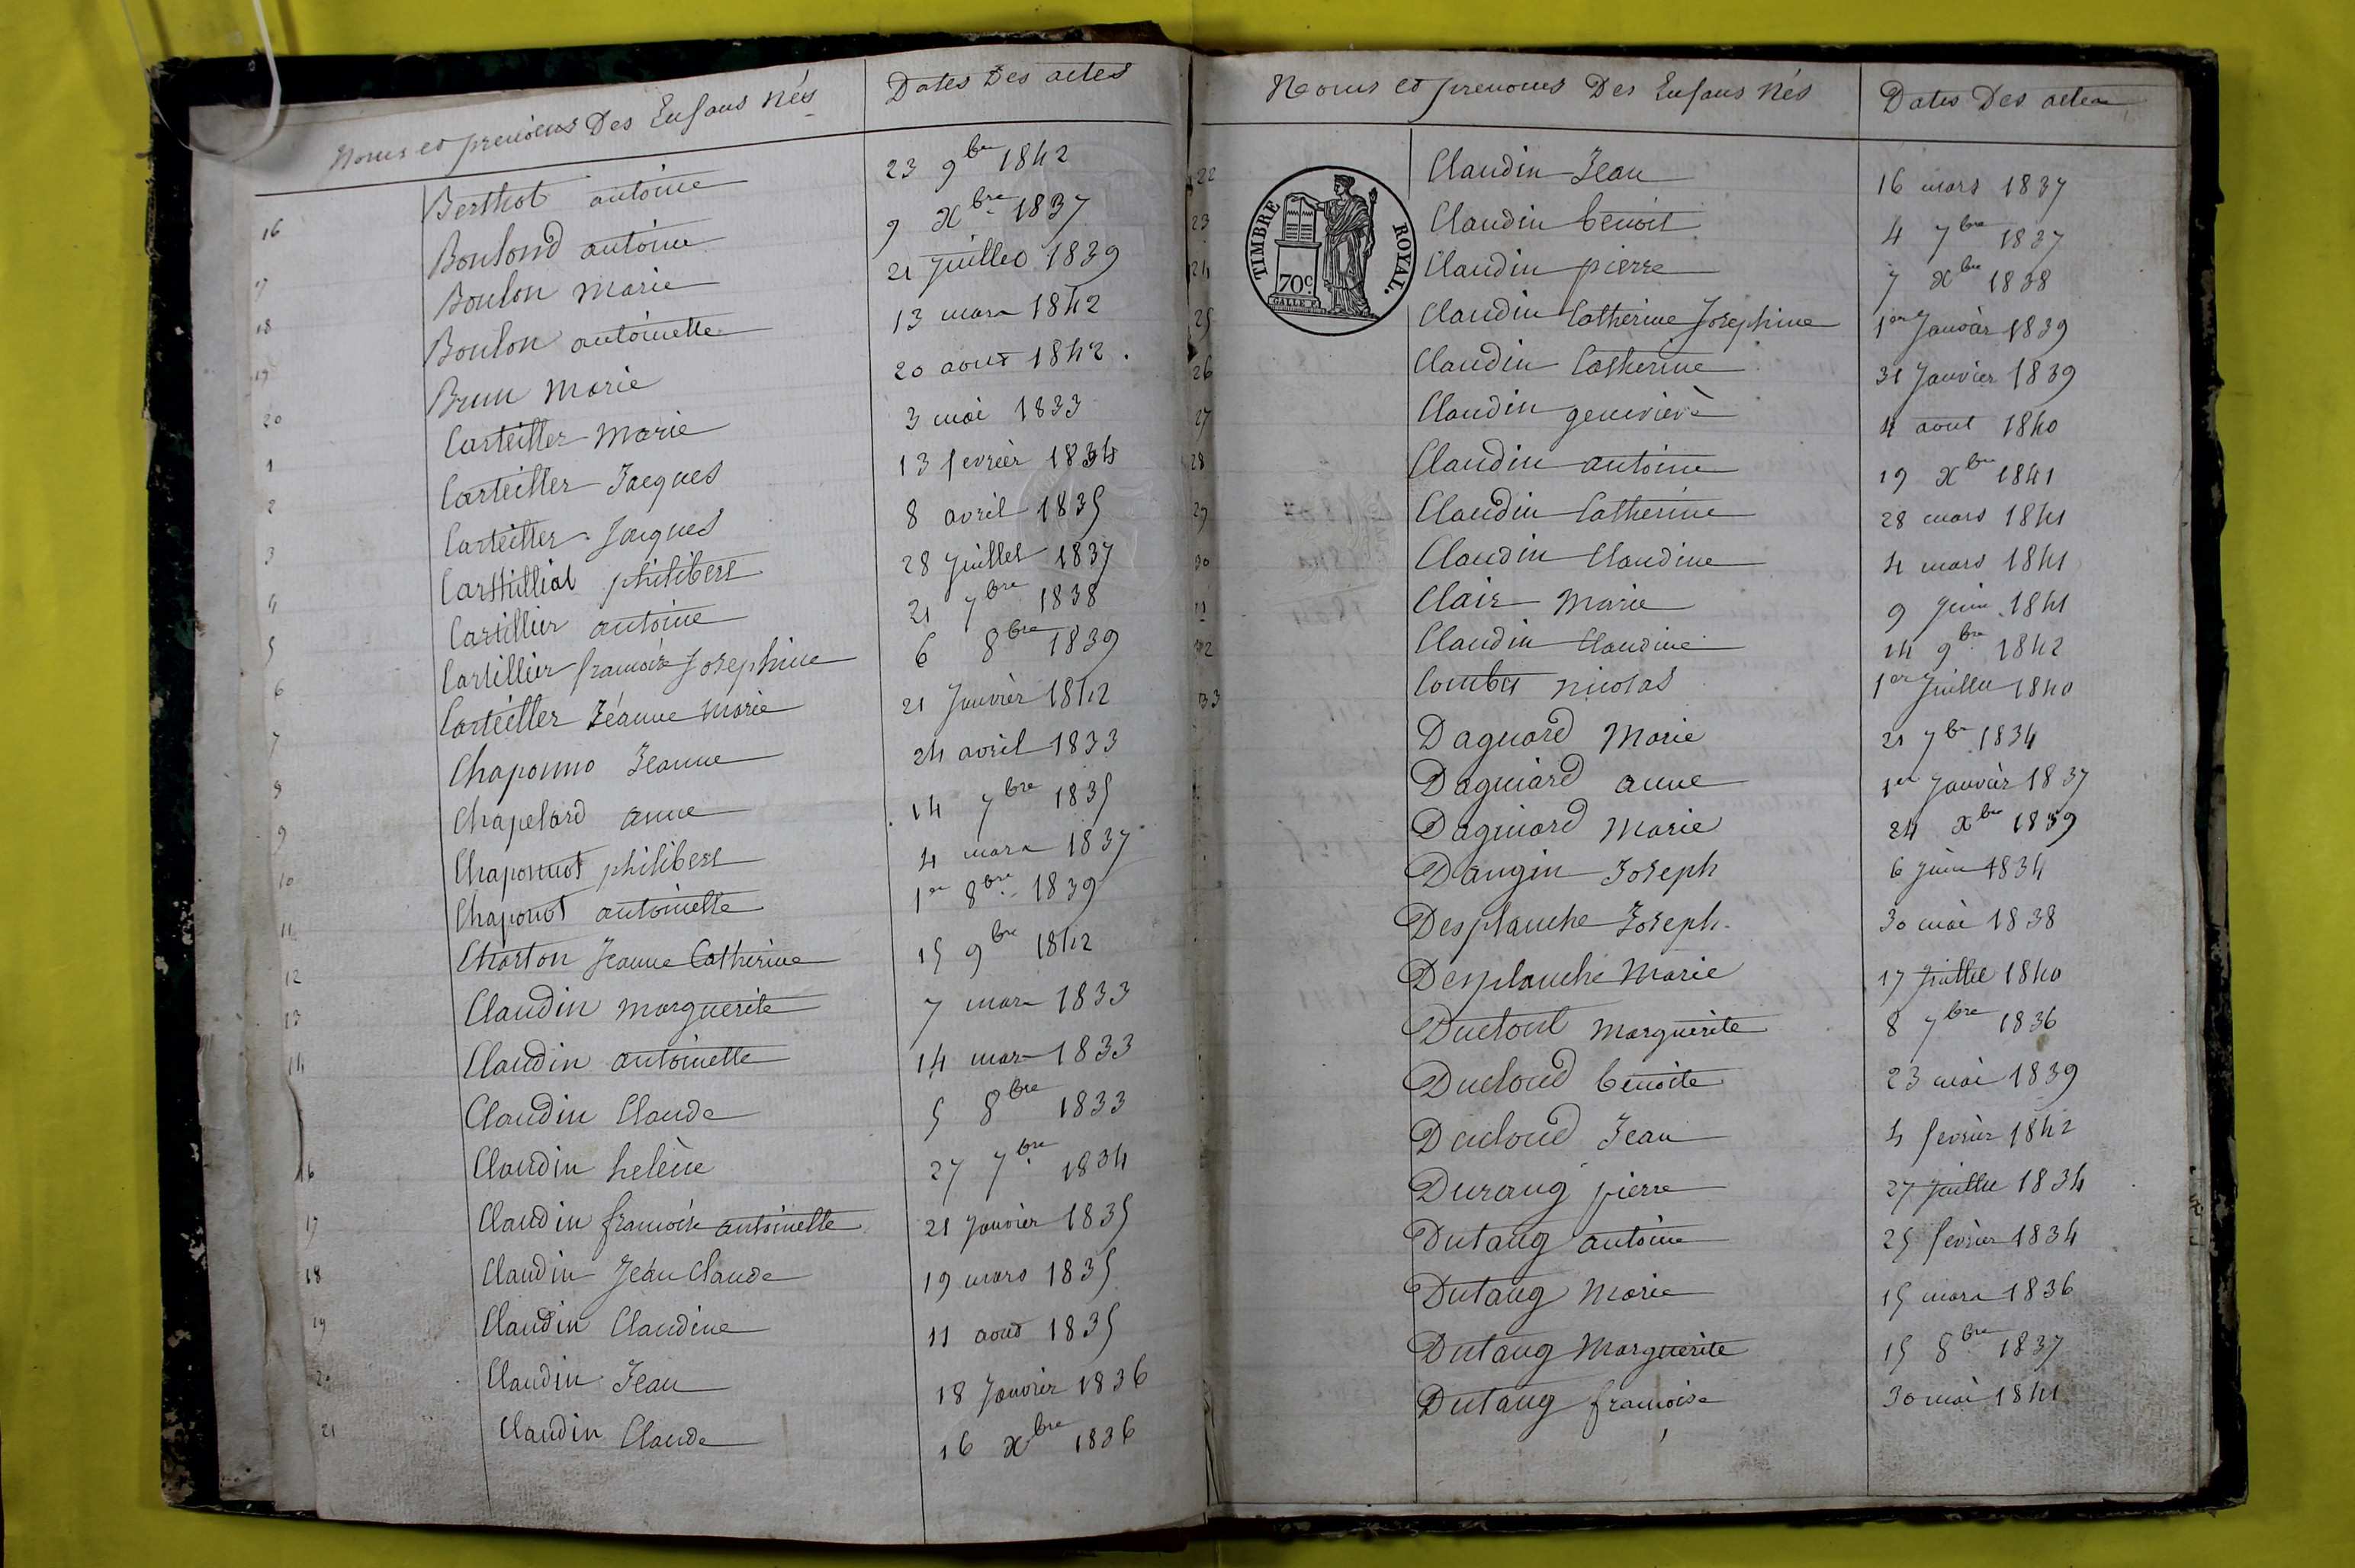 Noms et prenoms Des Enfans Nés Dates Des actes
16 Berthot antoine 23 9bre 1842
17 Boulond antoine 9 Xbre 1837
18 Boulon Marie 21 Juillet 1839
19 Boulon antoinette 13 mars 1842
20 Brun Marie 20 aout 1842.
1 Carteiller Marie 3 mai 1833
2 Carteiller Jacques 13 fevrier 1834
3 Carteiller Jacques 8 avril 1835
4 Carthilliat philibert 28 Juillet 1837
5 Cartillier antoine 21 7bre 1838
6 Cartillier francoise Josephine 6 8bre 1839
7 Carteiller Jéanne Marie 21 Janvier 1842
8 Chaponno Jeanne 24 avril 1833
9 Chapelard anne 14 7bre 1835
10 Chaponnot philibert 4 mars 1837
11 Chaponot antoinette 1er 8bre 1839
12 Charton Jeanne Catherine 15 9bre 1842
13 Claudin Marguerite 7 mars 1833
14 Claudin antoinette 14 mars 1833
Claudin Claude 5 8bre 1833
16 Claudin helène 27 7bre 1834
17 Claudin francoise antoinette 21 Janvier 1835
18 Claudin Jean Claude 19 mars 1835
19 Claudin Claudine 11 aout 1835
20 Claudin Jean 18 Janvier 1836
21 Claudin Claude 16 Xbre 1836
Noms et prenoms Des Enfans Nés Dates Des actes
TIMBRE ROYAL.
70c.
GALLE F.
22 Claudin Jean 16 mars 1837
23 Claudin benoit 4 7bre 1837
24 Claudin pierre 7 Xbre 1838
25 Claudin Catherine Josephine 1er Janvier 1839
26 Claudin Catherine 31 Janvier 1839
27 Claudin genevieve 4 aout 1840
28 Claudin antoine 19 Xbre 1841
29 Claudin Catherine 28 mars 1841
30 Claudin Claudine 4 mars 1841
Clair Marie 9 Juin 1841
32 Claudin Claudine 14 9bre 1842
33 Combet nicolas 1er Juillet 1840
Daguard Marie 21 7bre 1834
Daguiard anne 1er Janvier 1837
Daguiard Marie 24 Xbre 1839
Dangin Joseph 6 Juin 1834
Desplanche Joseph. 30 mai 1838
Desplanche Marie 17 Juillet 1840
Ducloud Marguerite 8 7bre 1836
Ducloud benoite 23 mai 1839
Ducloud Jean 4 fevrier 1842
Durang pierre 27 Juillet 1834
Dutang antoine 25 fevrier 1834
Dutang Marie 15 mars 1836
Dutang Marguerite 15 8bre 1837
Dutang francoise 30 mai 1841